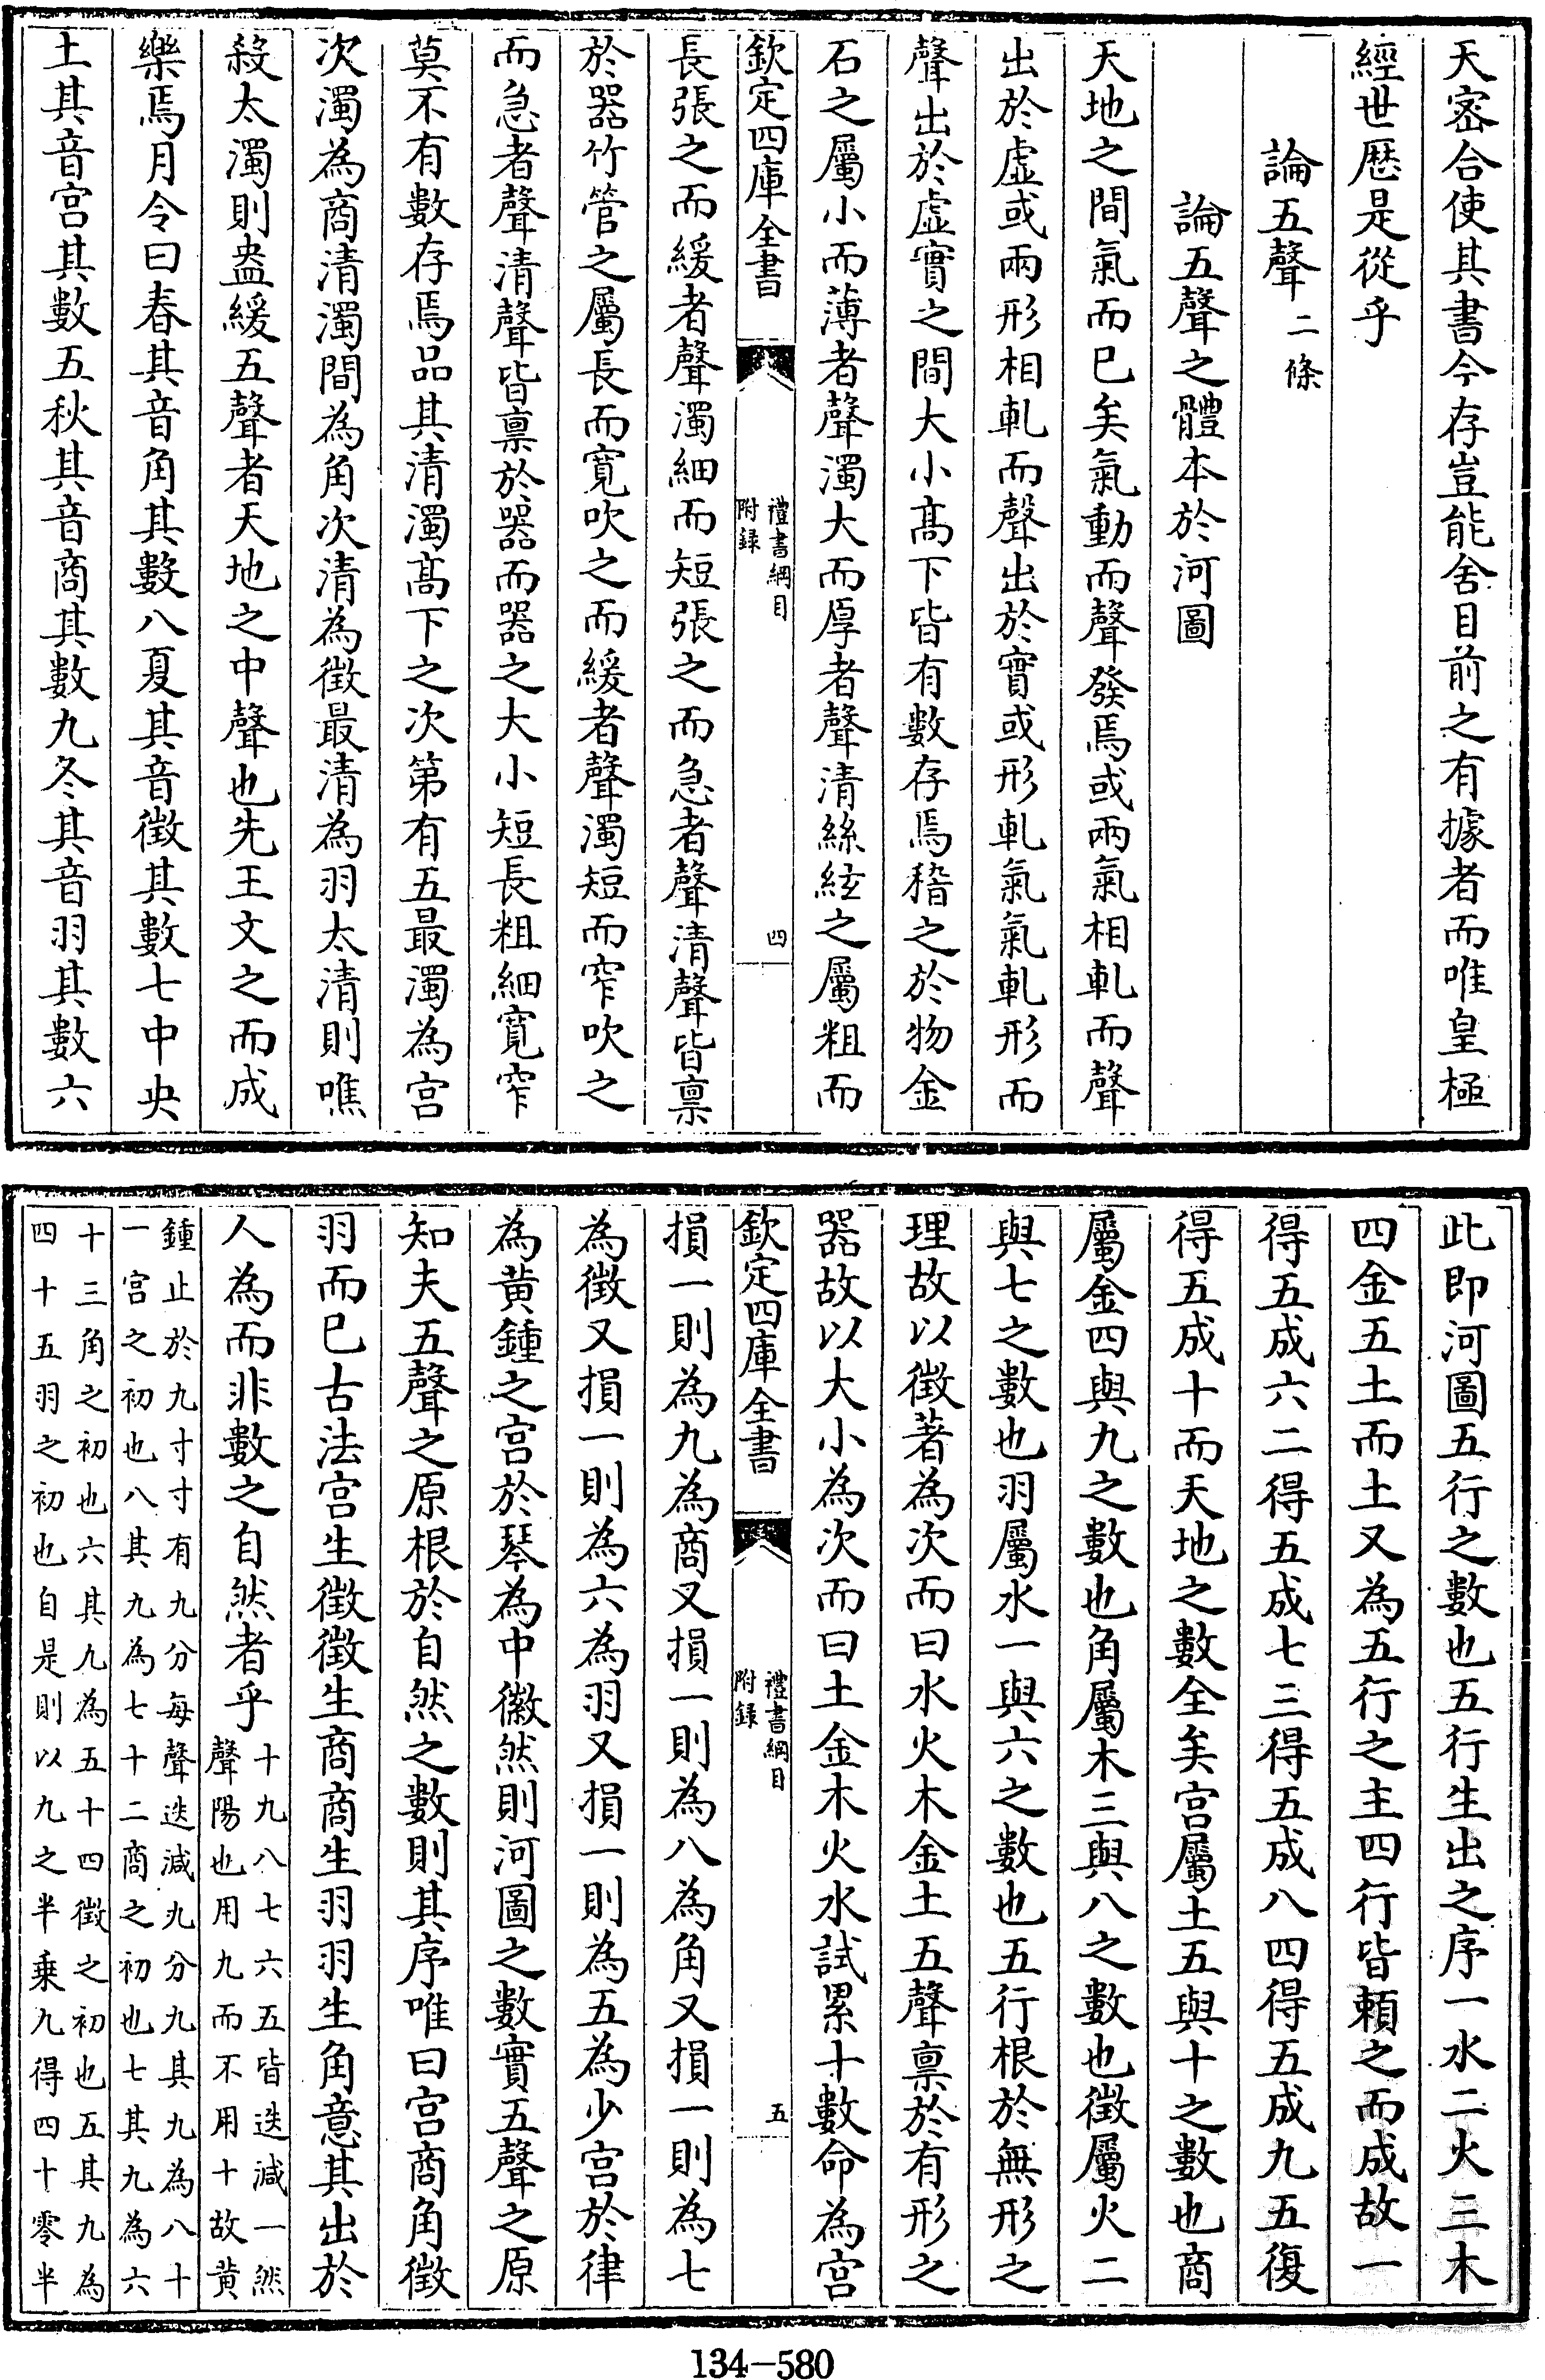 天宻合使其書今存豈能舍目前之有據者而唯皇極
經世厯是從乎
論五聲二條
論五聲之體本於河圖
天地之間氣而已矣氣動而聲發焉或兩氣相軋而聲
出於虛或兩形相軋而聲出於實或形軋氣氣軋形而
聲出於虛實之間大小髙下皆有數存焉稽之於物金
石之屬小而薄者聲濁大而厚者聲清絲絃之屬粗而
欽定四庫全書
禮書綱目
附録
四
長張之而緩者聲濁細而短張之而急者聲清聲皆禀
於器竹管之屬長而寛吹之而緩者聲濁短而窄吹之
而急者聲清聲皆禀於器而器之大小短長粗細寛窄
莫不有數存焉品其清濁髙下之次第有五最濁為宫
次濁為商清濁間為角次清為徵最清為羽太清則噍
殺太濁則盎緩五聲者天地之中聲也先王文之而成
樂焉月令曰春其音角其數八夏其音徵其數七中央
土其音宫其數五秋其音商其數九冬其音羽其數六
此即河圖五行之數也五行生出之序一水二火三木
四金五土而土又為五行之主四行皆賴之而成故一
得五成六二得五成七三得五成八四得五成九五復
得五成十而天地之數全矣宫屬土五與十之數也商
屬金四與九之數也角屬木三與八之數也徵屬火二
與七之數也羽屬水一與六之數也五行根於無形之
理故以微著為次而曰水火木金土五聲禀於有形之
器故以大小為次而曰土金木火水試累十數命為宫
欽定四庫全書
禮書綱目
附録
五
損一則為九為商又損一則為八為角又損一則為七
為徵又損一則為六為羽又損一則為五為少宫於律
為黄鍾之宫於琴為中徽然則河圖之數實五聲之原
知夫五聲之原根於自然之數則其序唯曰宫商角徵
羽而已古法宫生徵徵生商商生羽羽生角意其出於
人為而非數之自然者乎十九八七六五皆迭減一然
聲陽也用九而不用十故黄
鍾止於九寸寸有九分每聲迭減九分九其九為八十
一宫之初也八其九為七十二商之初也七其九為六
十三角之初也六其九為五十四徵之初也五其九為
四十五羽之初也自是則以九之半乗九得四十零半
134-580